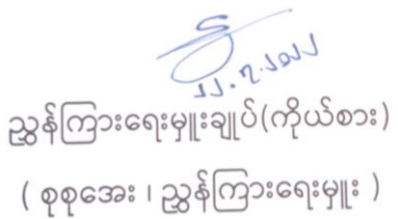 ၂၂.၇.၂၀၂၂
ညွှန်ကြားရေးမှူးချုပ်(ကိုယ်စား)
( စုစုအေး ၊ ညွှန်ကြားရေးမှူး )